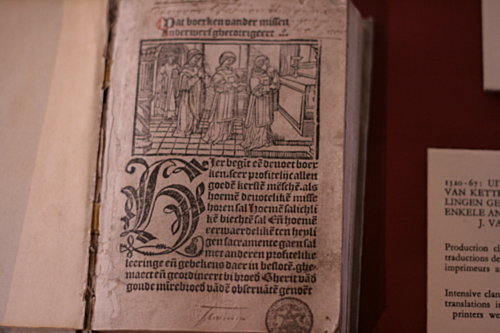 Dat boerken vander missen
anderwerf gheco2rigeert
Hier begīt eē deuoet boer
ken. seer profitelije allen
goedē kerstē mēsche. als
hoemē deuotelikē misse
horen sal Hoemē salichli
kē biechtē sal Eñ hoemē
eerwaerdelikē ten heyli
gen sacramente gaen sal
met anderen profitelike
leeringe eñ gebekens daer in beslotē. ghe
maect eñ geordineert bi broed Gherit vād
goude mīrebroed vādē obseruātē genoēt
1520-67: UI
VAN KETTE
LINGEN GE
ENKELE AN
J. VA
Production cl
traductions de
imprimeurs a
Intensive clan
translations in
printers we